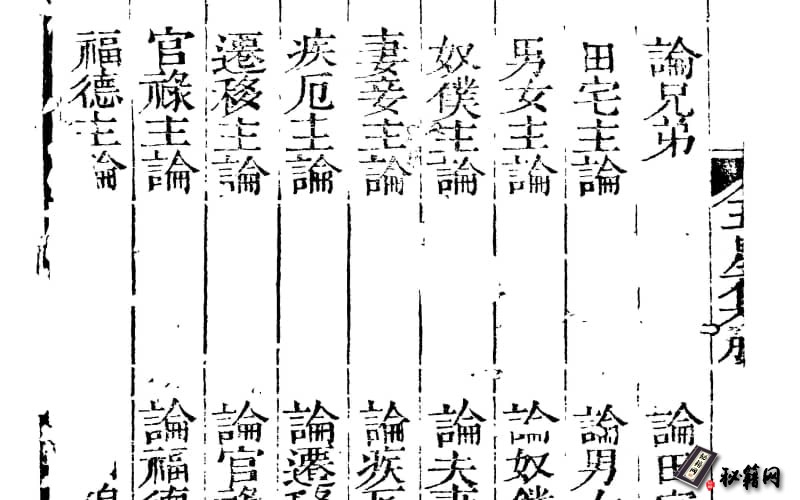 論兄弟
論田
田宅主論
論男女
男女主論
論奴僕
奴僕主論
論夫妻
妻妾主論
論疾厄
疾厄主論
論遷移
遷移主論
論官祿
官祿主論
論福德
福德主論
秘籍网